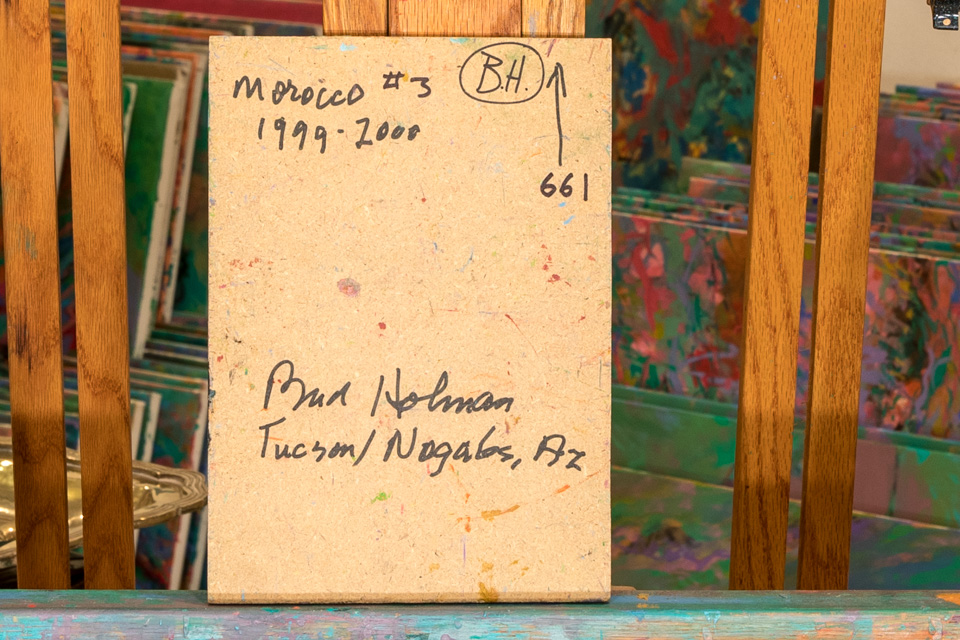 Morocco #3
1999-2000
B.H.
661
Bud Holman
Tucson/Nogales, Az